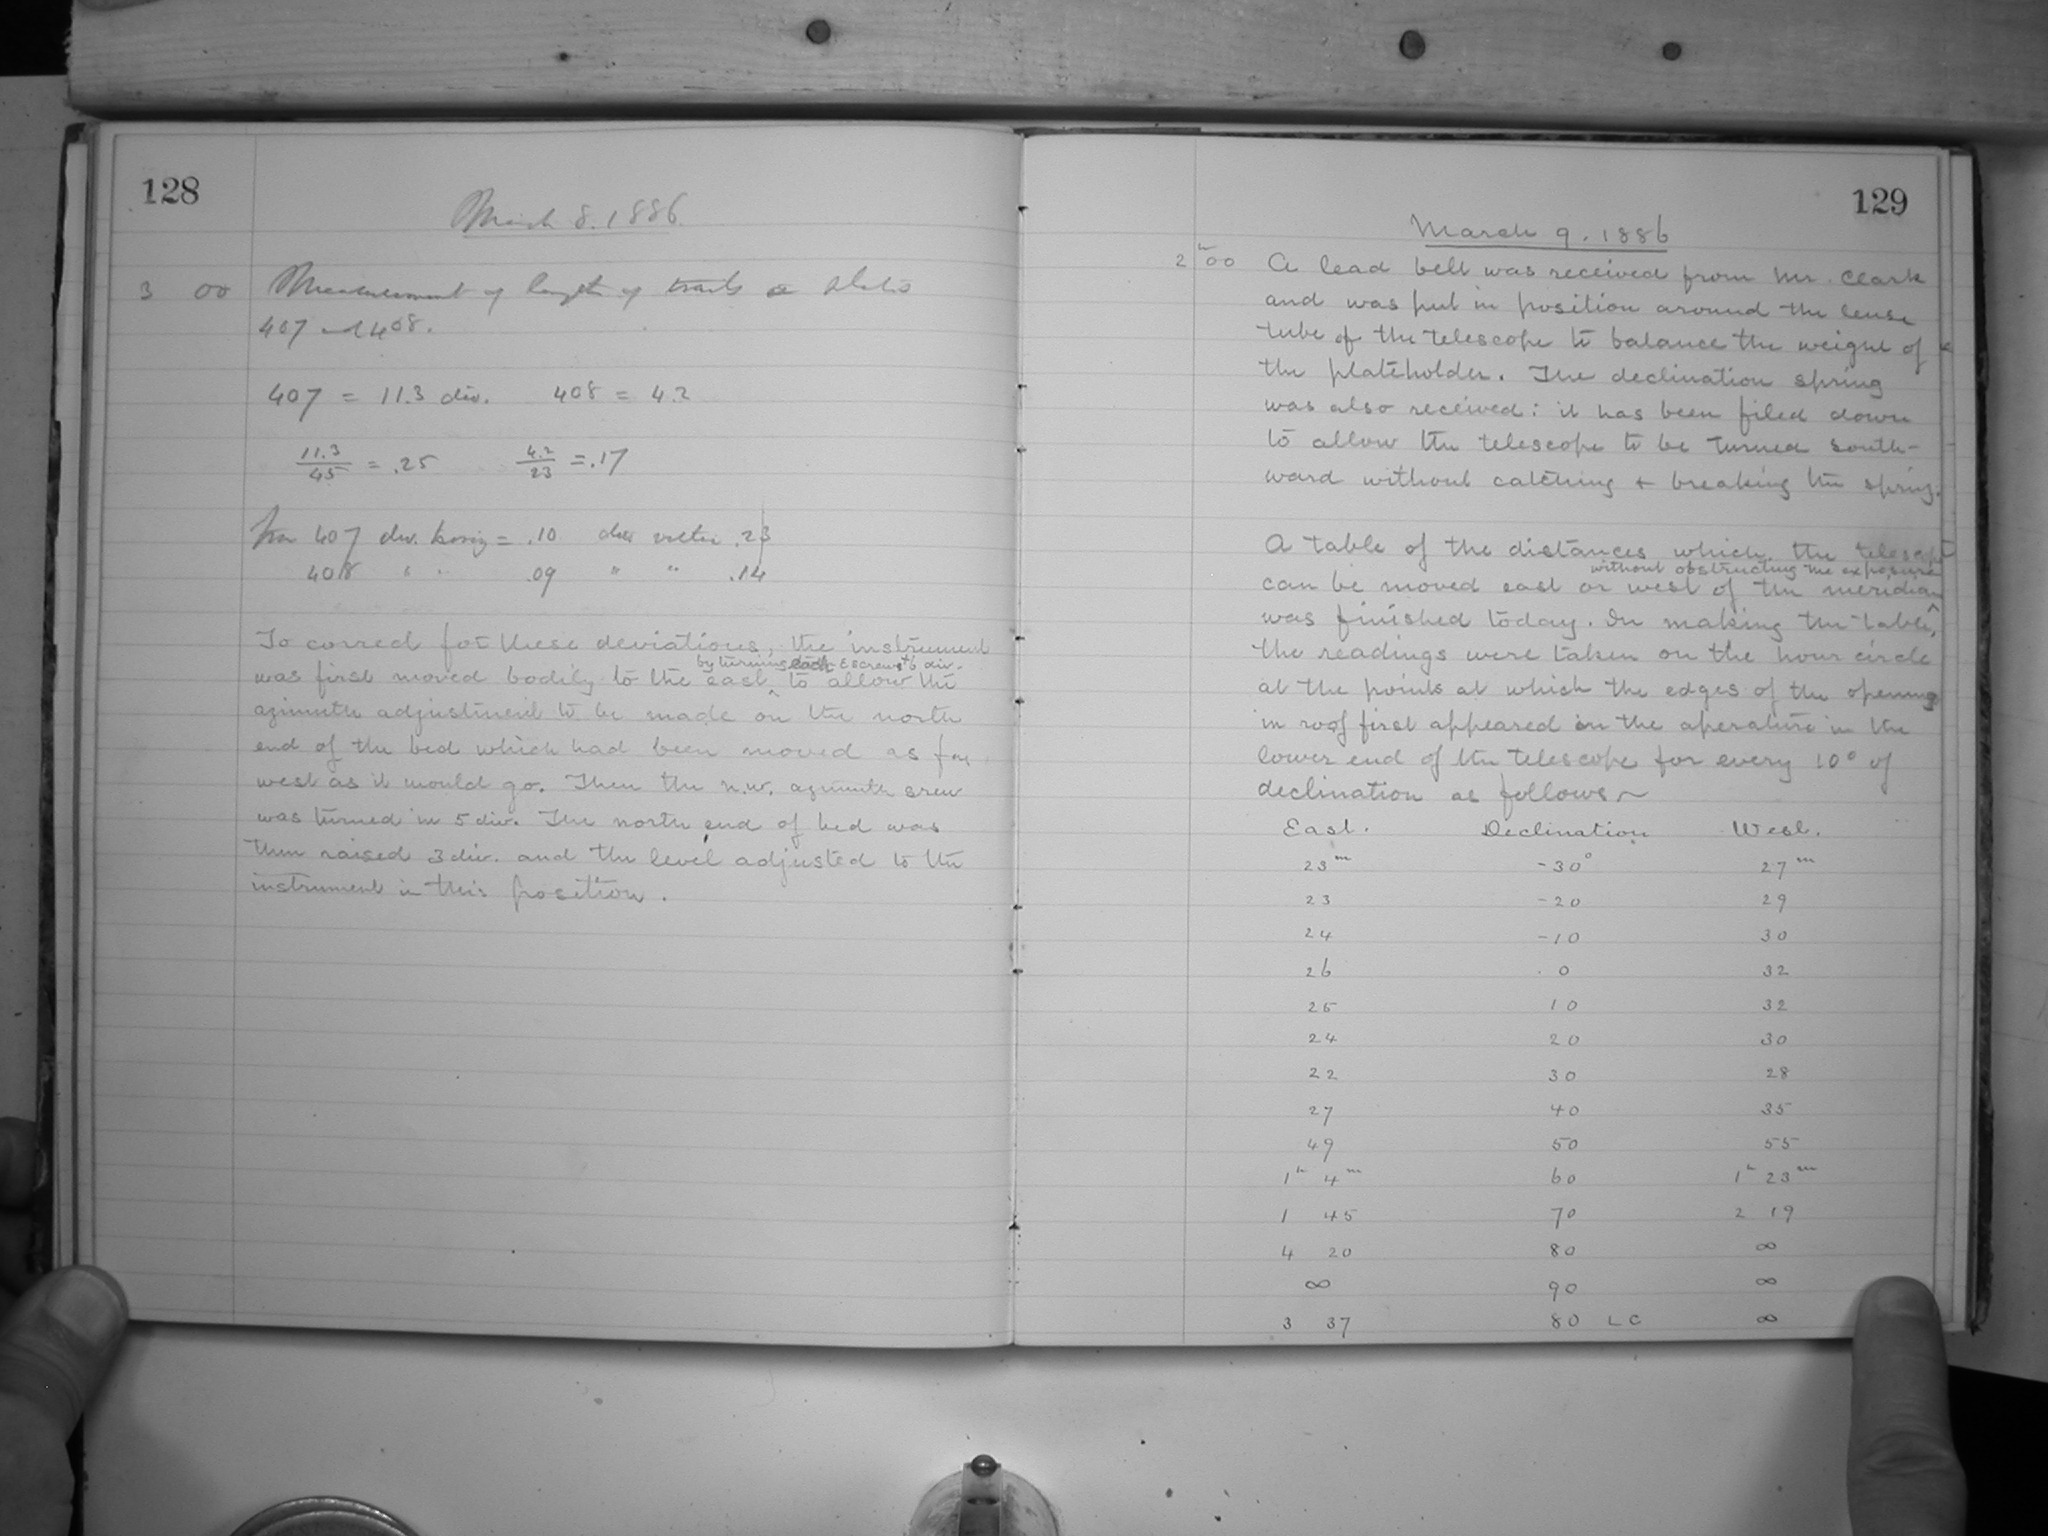 128
March 8. 1886.
3 00 Measurement of length of trails on plates
407 and 408.
407 = 11.3 div. 408 = 4.2
11.3/45 = .25 4.2/23 = .17
From 407 dev. horiz = .10 dev. vertic .23
408 " " .09 " " .14
To correct for these deviations, the instrument
by turning each E screw 6 div.
was first moved bodily to the east ^ to allow the
azimuth adjustment to be made on the north
end of the bed which had been moved as far
west as it would go. Then the n.w. azimuth screw
was turned in 5 div. The north end of bed was
then raised 3 div. and the level adjusted to the
instrument in this position.
129
March 9. 1886
2h 00 A lead belt was received from Mr. Clark
and was put in position around the lense
tube of the telescope to balance the weight of
the plateholder. The declination spring
was also received: it has been filed down
to allow the telescope to be turned south-
ward without catching + breaking the spring.
A table of the distances which the telescope
without obstructing the exposure
can be moved east or west of the meridian ^
was finished today. In making the table,
the readings were taken on the hour circle
at the points at which the edges of the opening
in roof first appeared in the aperature in the
lower end of the telescope for every 10° of
declination as follows ~
East. Declination West.
23m -30° 27m
23 -20 29
24 -10 30
26 0 32
25 10 32
24 20 30
22 30 28
27 40 35
49 50 55
1h 4m 60 1h 23m
1 45 70 2 19
4 20 80 ∞
∞ 90 ∞
3 37 80 LC ∞